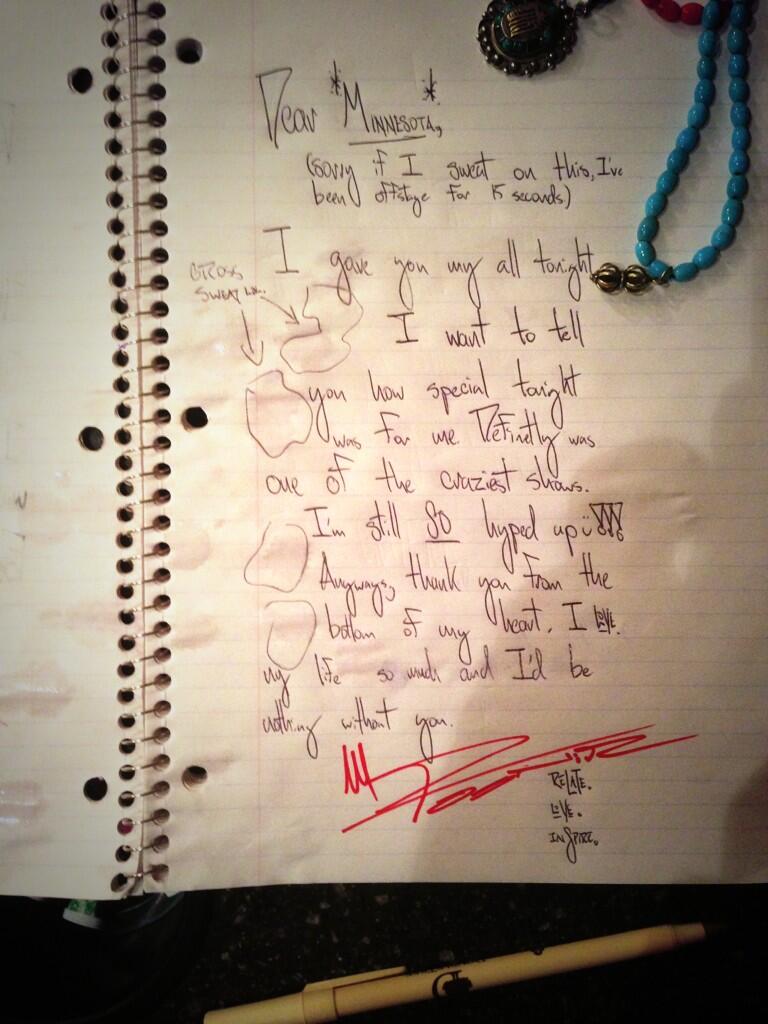 Dear *MINNESOTA,*
(sorry if I sweat on this, I've
been offstage for 15 seconds)
I gave you my all tonight
GROSS
SWEAT
I want to tell
you how special tonight
was for me. Definetly was
one of the craziest shows.
I'm still SO hyped up ü!!!
Anyways, thank you from the
bottom of my heart. I LOVE
my life so much and I'd be
nothing without you.
RELATE.
LOVE.
INSPIRE.